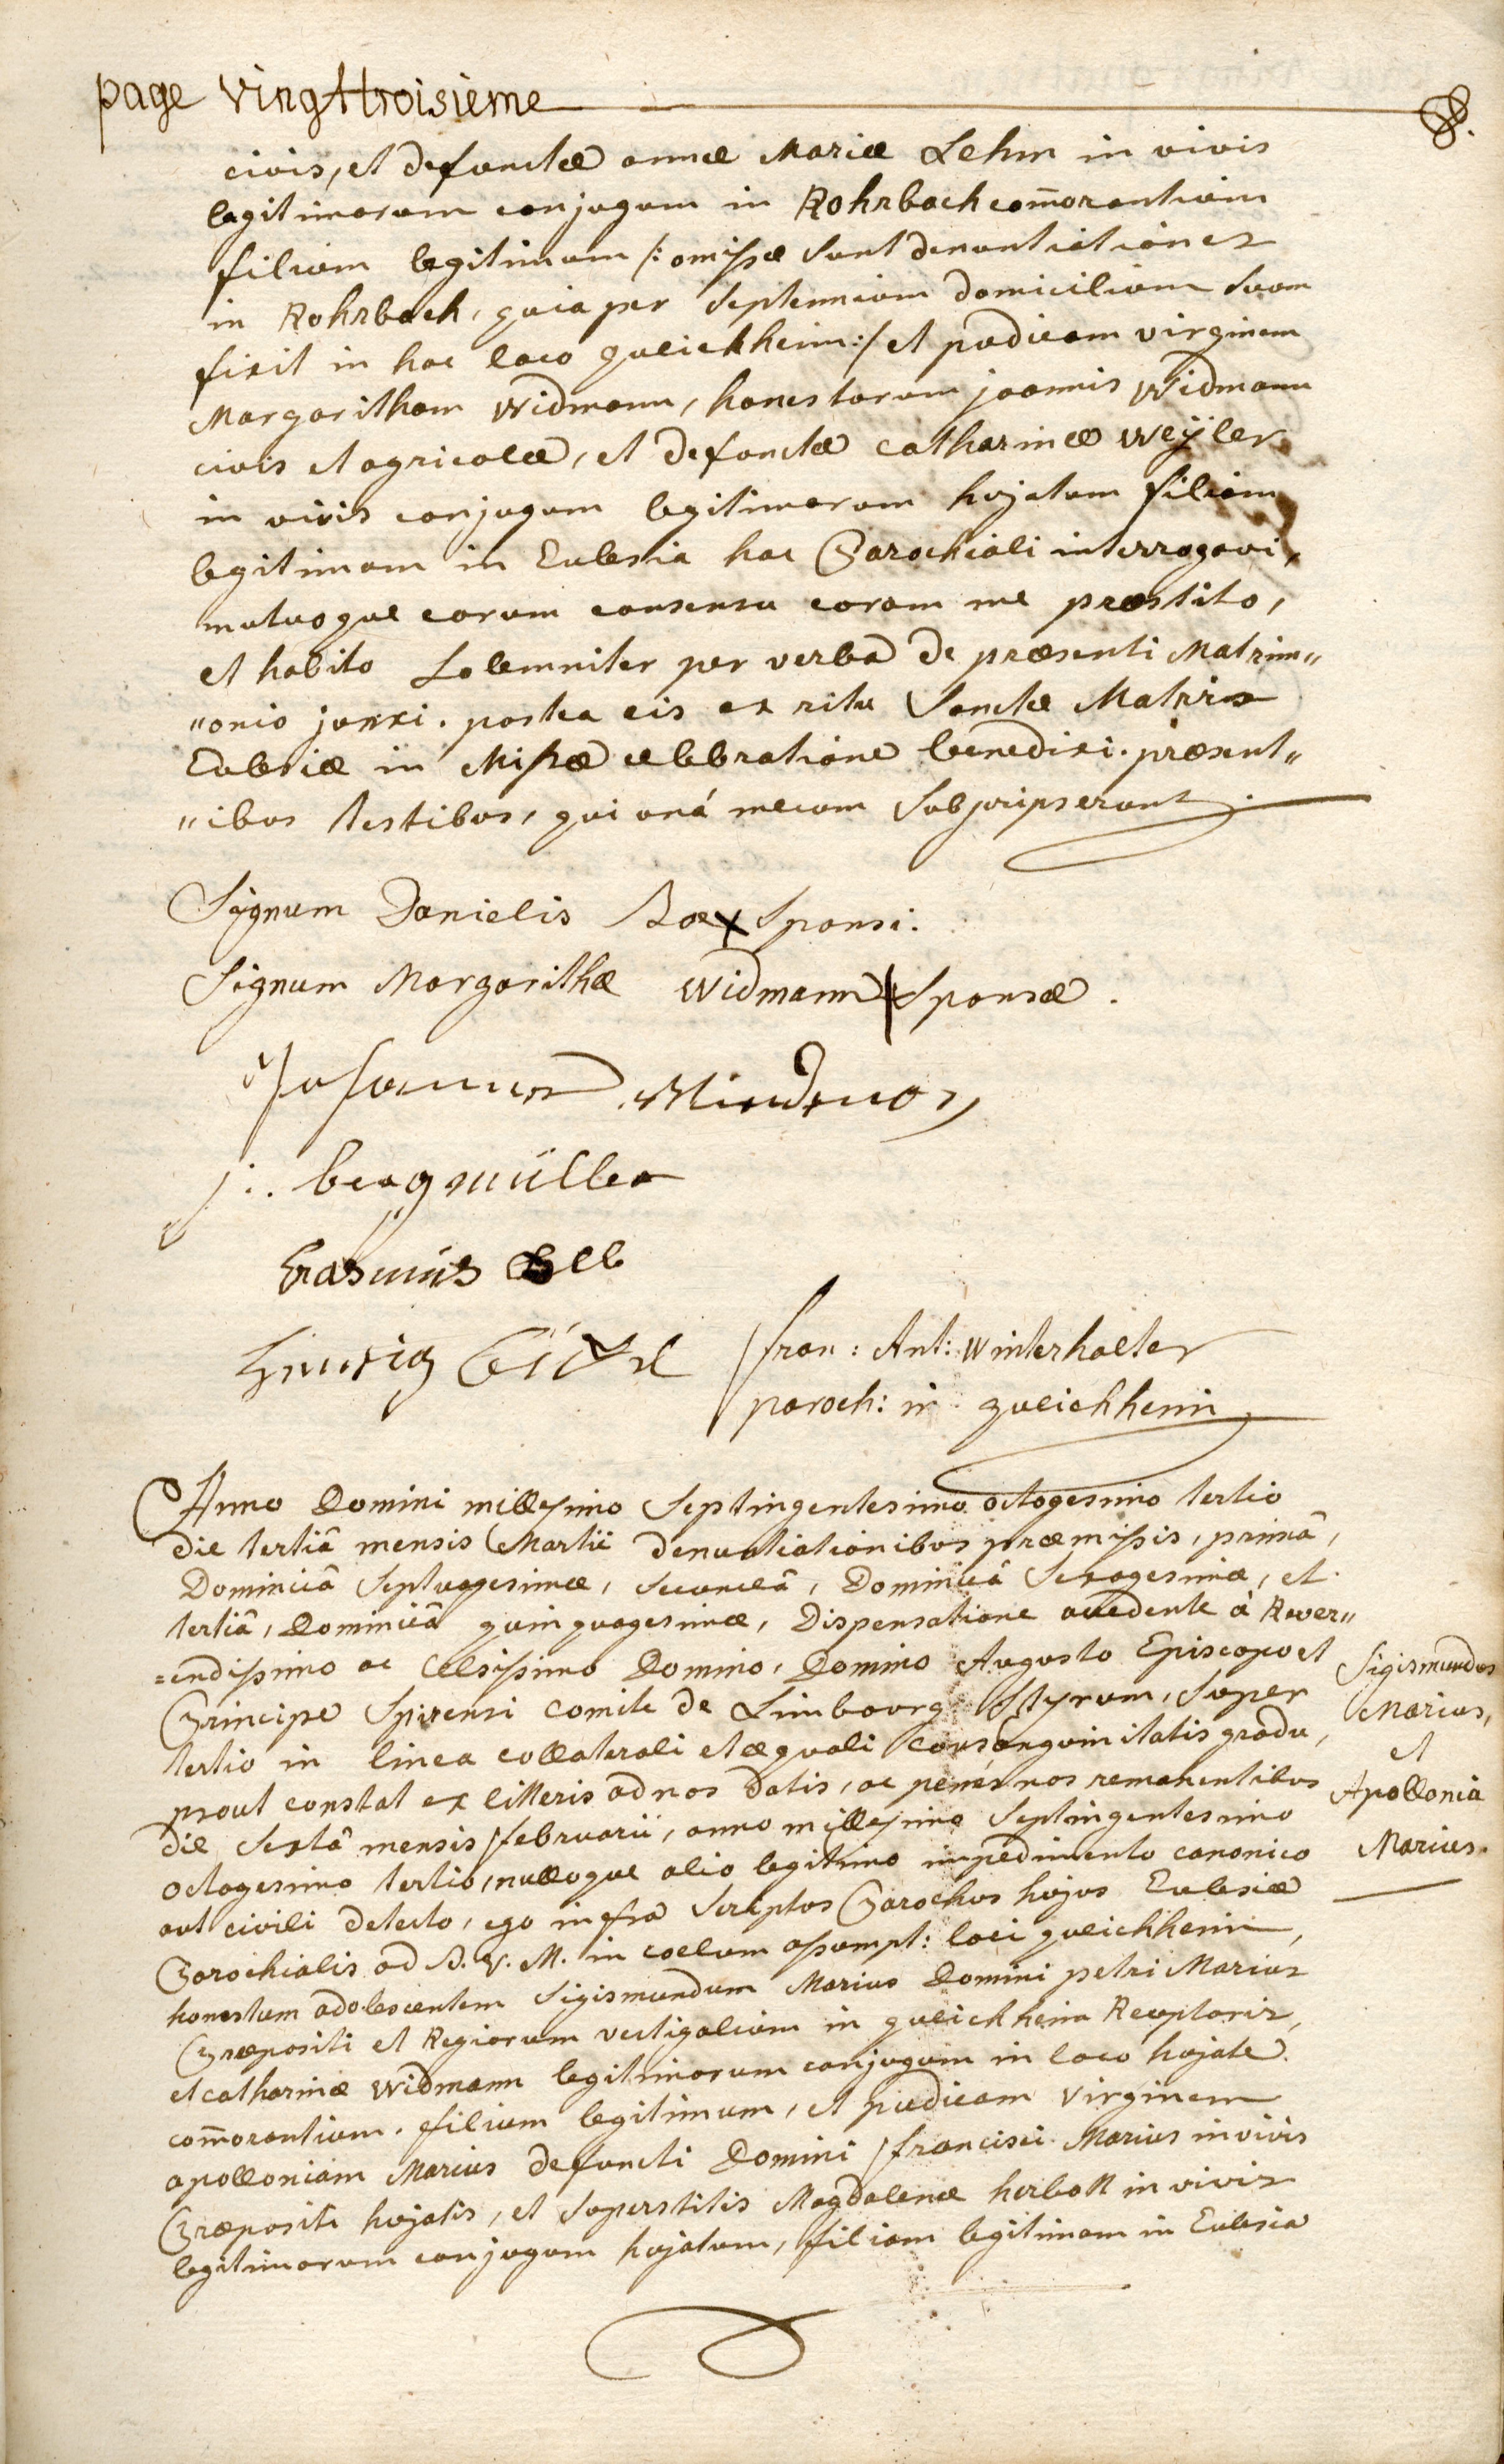 page vingttroisieme
civis, et defunctæ annæ Mariæ Lehm in vivis
legitimorum conjugum in Rohrbach com̄orantium
filium legitimum /: omissæ sunt denuntiationes
in Rohrbach, quia per septennium domicilium suum
fixit in hoc loco queichheim :/ et pudicam virginem
Margaritham Widmann, honestorum joannis Widmann
civis et agricolæ, et defunctæ catharinæ Weÿler
in vivis conjugum legitimorum hujatum filiam
legitimam in Ecclesia hac Parochiali interrogavi,
mutuoque eorum consensu coram me præstito,
et habito solemniter per verba de præsenti Matrim„
„onio junxi. postea eis ex ritu Sanctæ Matris
Ecclesiæ in Missæ celebratione benedixi. præsent„
„ibus testibus, qui unâ mecum subscripserunt.
Signum Danielis x Sponsi.
Signum Margarithæ Widmann Sponsæ.
bergmüller
Erasmus
fran: Ant: Winterhalter
paroch: in queichheim
Anno Domini millesimo Septingentesimo octogesimo tertio
die tertiâ mensis Martii denuntiationibus præmissis, primâ,
Dominicâ Septuagesimæ, secundâ, Dominicâ Sexagesimæ, et
tertiâ, Dominicâ quinquagesimæ, Dispensatione accedente à Rever„
=endissimo ac Celsissimo Domino, Domino Augusto Episcopo et
Principe Spirensi comite de Limbourg Styrum, super
tertio in linea collaterali et æquali consanguinitatis gradu,
prout constat ex litteris ad nos datis, ac penès nos remanentibus
die sextâ mensis februarii, anno millesimo Septingentesimo
octogesimo tertio, nulloque alio legitimo impedimento canonico
aut civili detecto, ego infra scriptus Parochus hujus Ecclesiæ
Parochialis ad B. V. M. in coelum assumpt: loci queichheim,
honestum adolescentem Sigismundum Marius Domini petri Marius
Præpositi et Regiorum vectigalium in queichheim Receptoris,
et catharinæ Widmann legitimorum conjugum in loco hujate
com̄orantium. filium legitimum, et pudicam virginem
apolloniam Marius defuncti Domini francisci Marius in vivis
Præpositi hujatis, et superstitis Magdalenæ herbott in vivis
legitimorum conjugum hujatum, filiam legitimam in Ecclesia
Sigismundus
Marius,
et
Apollonia
Marius.